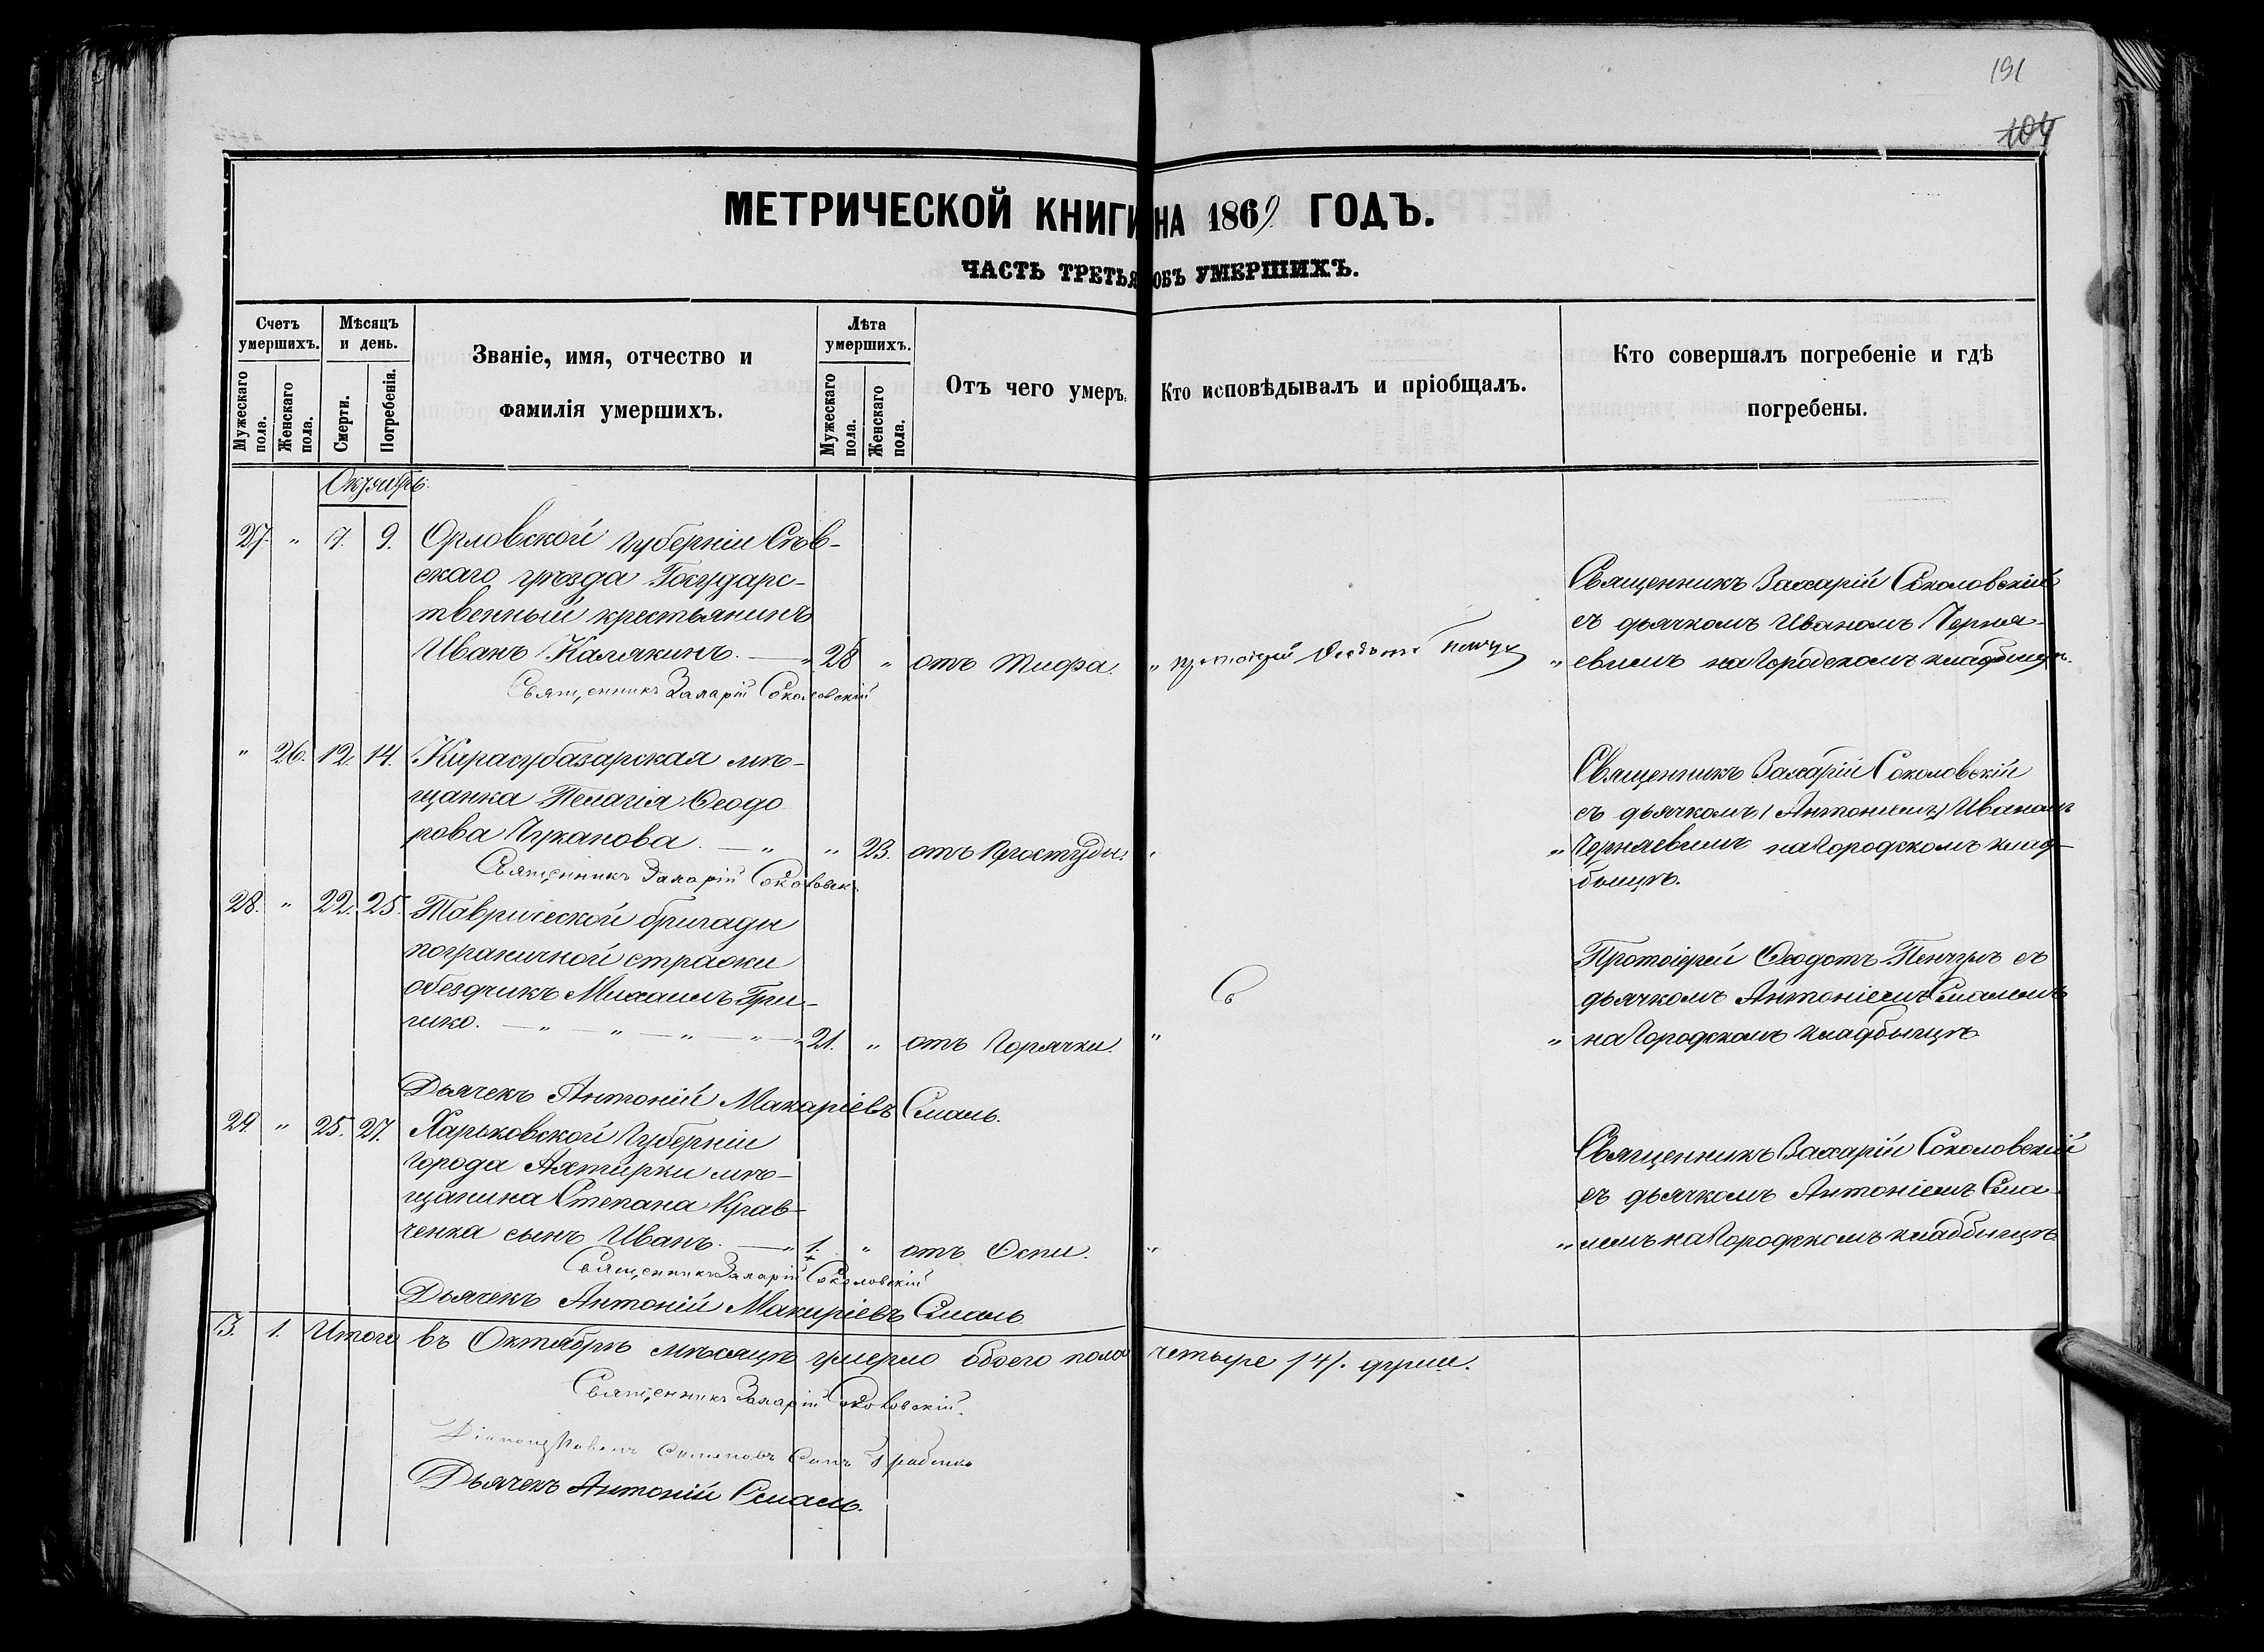 191
104
МЕТРИЧЕСКОЙ КНИГИ НА 1869 ГОДЪ.
ЧАСТЬ ТРЕТЬЯ ОБЪ УМЕРШИХЪ.
Счетъ умершихъ.
Мужескаго пола.
Женскаго пола.
Мѣсяцъ и день.
Смерти.
Погребенія.
Званіе, имя, отчество и
фамилія умершихъ.
Лѣта умершихъ.
Мужескаго пола.
Женскаго пола.
Отъ чего умеръ.
Кто исповѣдывалъ и пріобщалъ.
Кто совершалъ погребеніе и гдѣ
погребены.
Октябрь.
27. " 7. 9. Орловской губерніи Сѣв-
скаго уѣзда Государс-
твенный крестьянинъ
Иванъ Калякинъ. — " 28 " отъ Тифа. "
Священникъ Захарій Соколовскій
протоіерей Ѳеодотъ
Священникъ Захарій Соколовскій
съ дьячкомъ Иваномъ Черня-
" евымъ на Городскомъ кладбищѣ.
" 26. 12. 14. Карасубазарская мѣ-
щанка Пелагія Ѳеодо
рова Чуканова. — " " 23. отъ Простуды. "
Священникъ Захарій Соколовск.
Священникъ Захарій Соколовскій
съ дьячкомъ (Антоніемъ) Иваномъ
" Черняевымъ на Городскомъ клад-
бищѣ.
28. " 22. 25. Таврической бригады
пограничной стражи
обездчикъ Михаилъ Гри-
цко. — " — " — " — " — " 21. " отъ Горячки. "
Дьячекъ Антоній Макаріевъ Смаль.
Съ
Протоіерей Ѳеодотъ Пенчулъ съ
дьячкомъ Антоніемъ Смалемъ
" на Городскомъ кладбищѣ
29. " 25. 27. Харьковской Губерніи
Города Ахтирки мѣ-
щанина Степана Крав-
ченка сынъ Иванъ. — " 1. " отъ Оспи. "
Священникъ Захарій Соколовскій
Дьячекъ Антоній Макаріевъ Смаль
Священникъ Захарій Соколовскій
съ дьячкомъ Антоніемъ Сма-
" лемъ на Городскомъ кладбищѣ
3. 1. Итого въ Октябрѣ мѣсяцѣ умерло обоего пола четыре /4/. души.
Священникъ Захарій Соколовскій.
Дьячекъ Антоній Смаль.